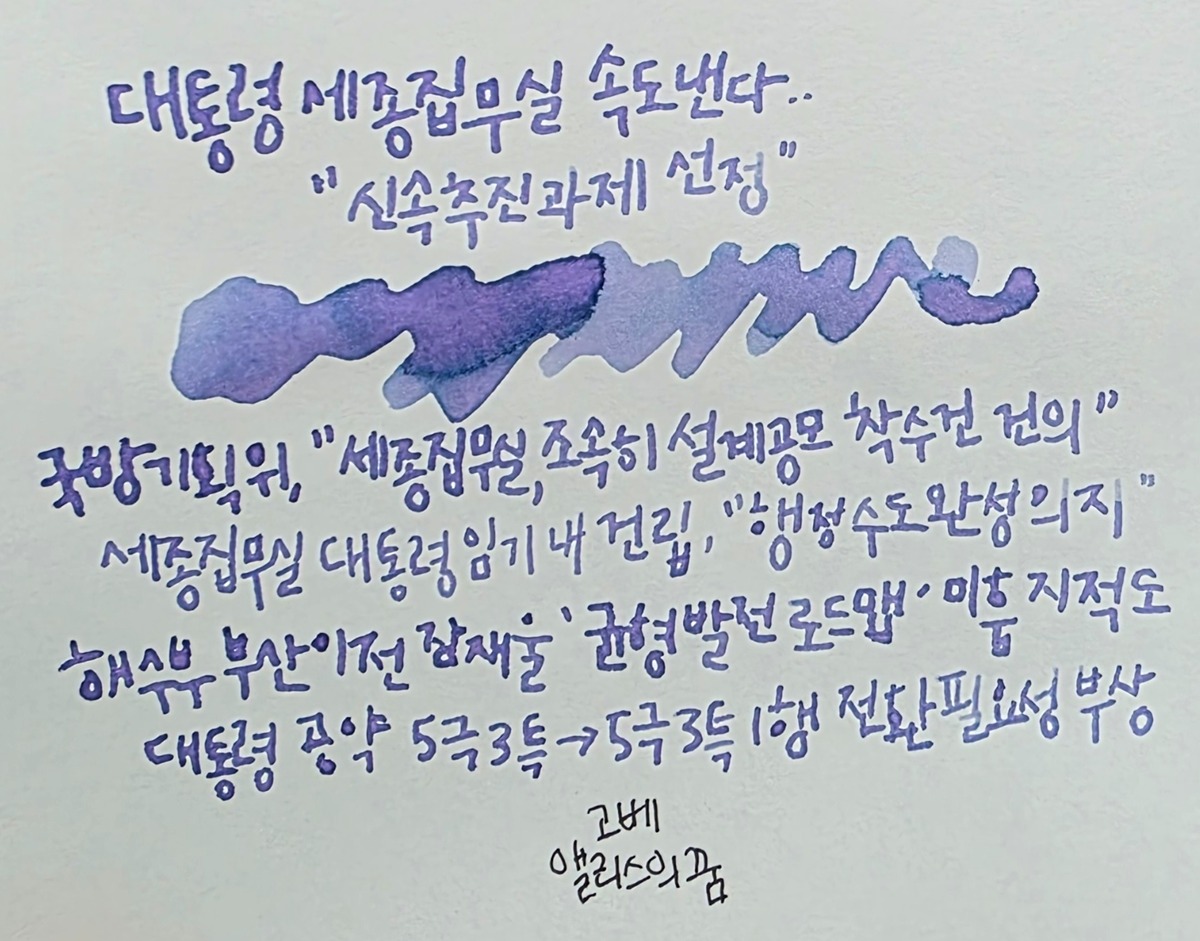 대통령 세종집무실 속도낸다..
"신속추진과제 선정"
국방기획위, "세종집무실, 조속히 설계공모 착수건 건의"
세종집무실 대통령임기내 건립, "행정수도완성의지"
해수부 부산이전 잠재울 '균형발전 로드맵' 미흡 지적도
대통령 공약 5극3특→5극3특1행 전환필요성 부상
고베
앨리스의 꿈